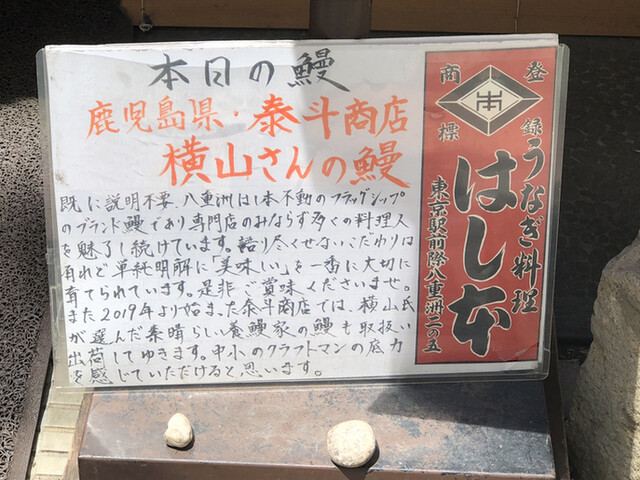 本日の鰻
鹿児島県・泰斗商店
横山さんの鰻
既に説明不要。八重洲はし本不動のフラッグシップ
のブランド鰻であり専門店のみならず多くの料理人
を魅了し続けています。語り尽くせないこだわりは
有れど単純明解に「美味しい」を一番に大切に
育てられています。是非ご賞味くださいませ。
また2019年より始まった泰斗商店では、横山氏
が選んだ素晴らしい養鰻家の鰻も取扱い
出荷してゆきます。中小のクラフトマンの底力
を感じていただけると思います。
登録
商標
本
うなぎ料理
はし本
東京駅前際八重洲二の五